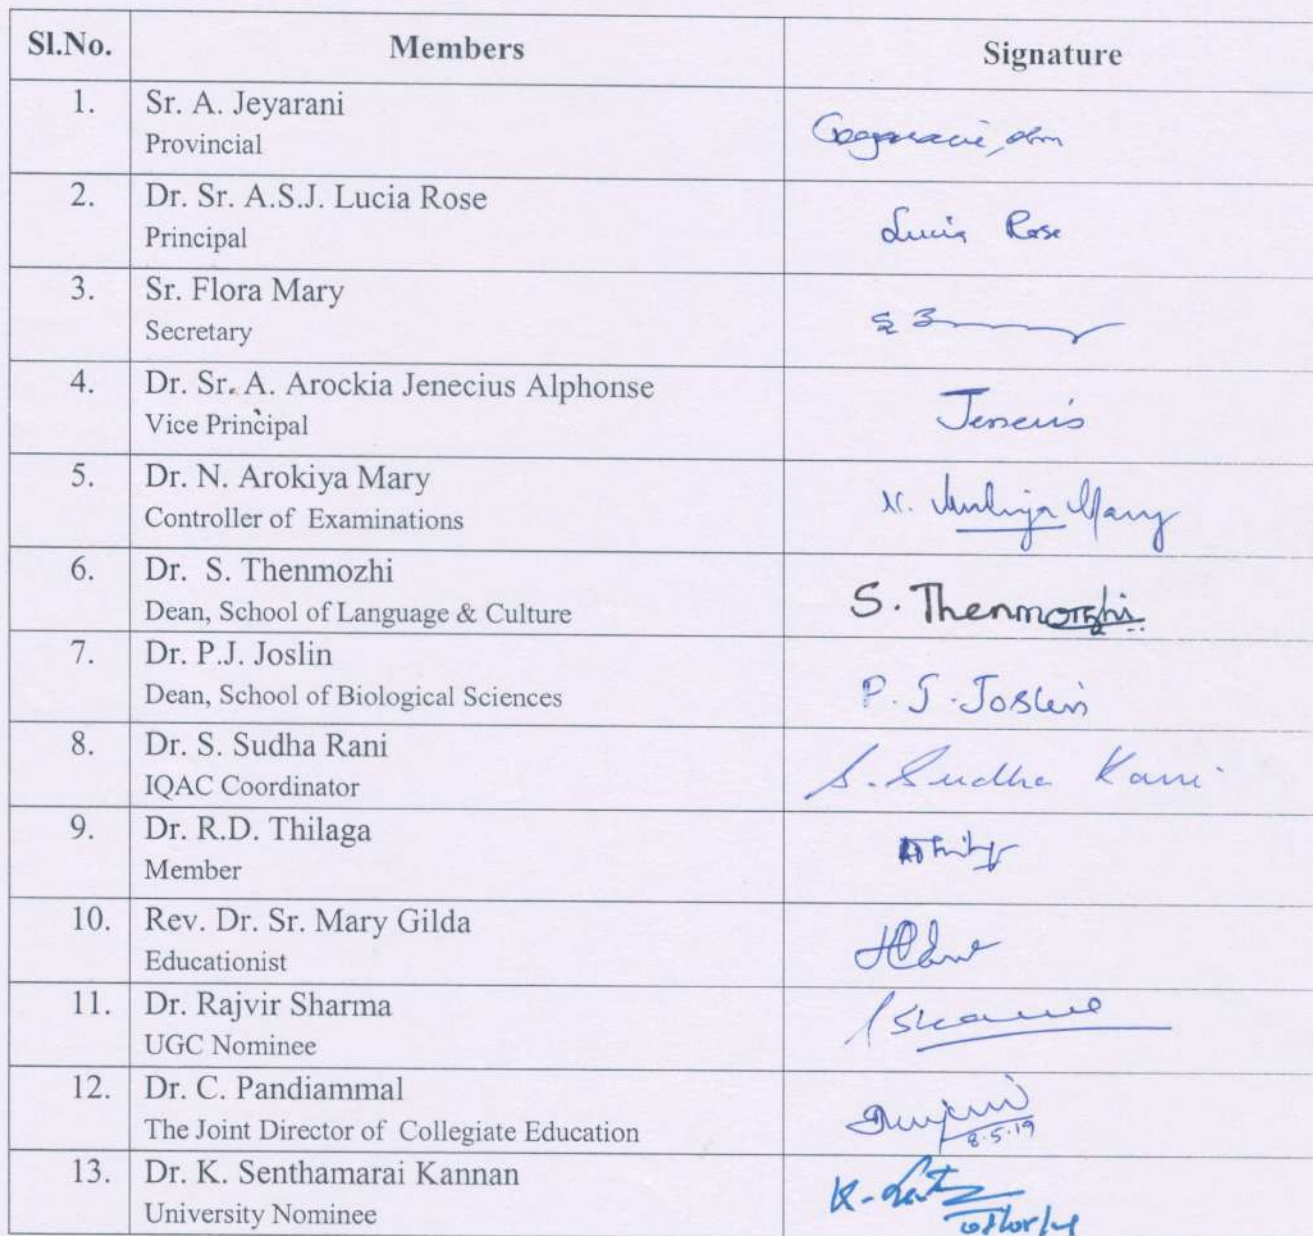 Sl.No. Members Signature
1. Sr. A. Jeyarani
Provincial
2. Dr. Sr. A.S.J. Lucia Rose
Principal
Lucia Rose
3. Sr. Flora Mary
Secretary
4. Dr. Sr. A. Arockia Jenecius Alphonse
Vice Principal
5. Dr. N. Arokiya Mary
Controller of Examinations
N. Mary
6. Dr. S. Thenmozhi
Dean, School of Language & Culture
S. Thenmozhi
7. Dr. P.J. Joslin
Dean, School of Biological Sciences
P. J. Joslin
8. Dr. S. Sudha Rani
IQAC Coordinator
S. Sudha Rani
9. Dr. R.D. Thilaga
Member
10. Rev. Dr. Sr. Mary Gilda
Educationist
11. Dr. Rajvir Sharma
UGC Nominee
12. Dr. C. Pandiammal
The Joint Director of Collegiate Education
8.5.19
13. Dr. K. Senthamarai Kannan
University Nominee